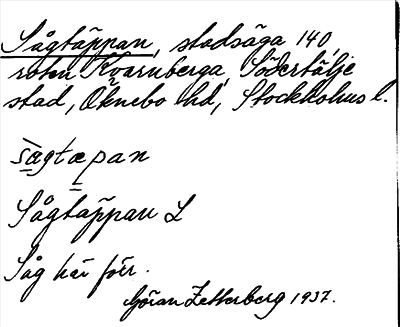 Sågtäppan, stadsäga 140,
roten Kvarnberga, Södertälje
stad, Öknebo hd, Stockholms l.
sagtæpan
Sågtäppan L
Såg här förr.
Göran Zetterberg 1937.